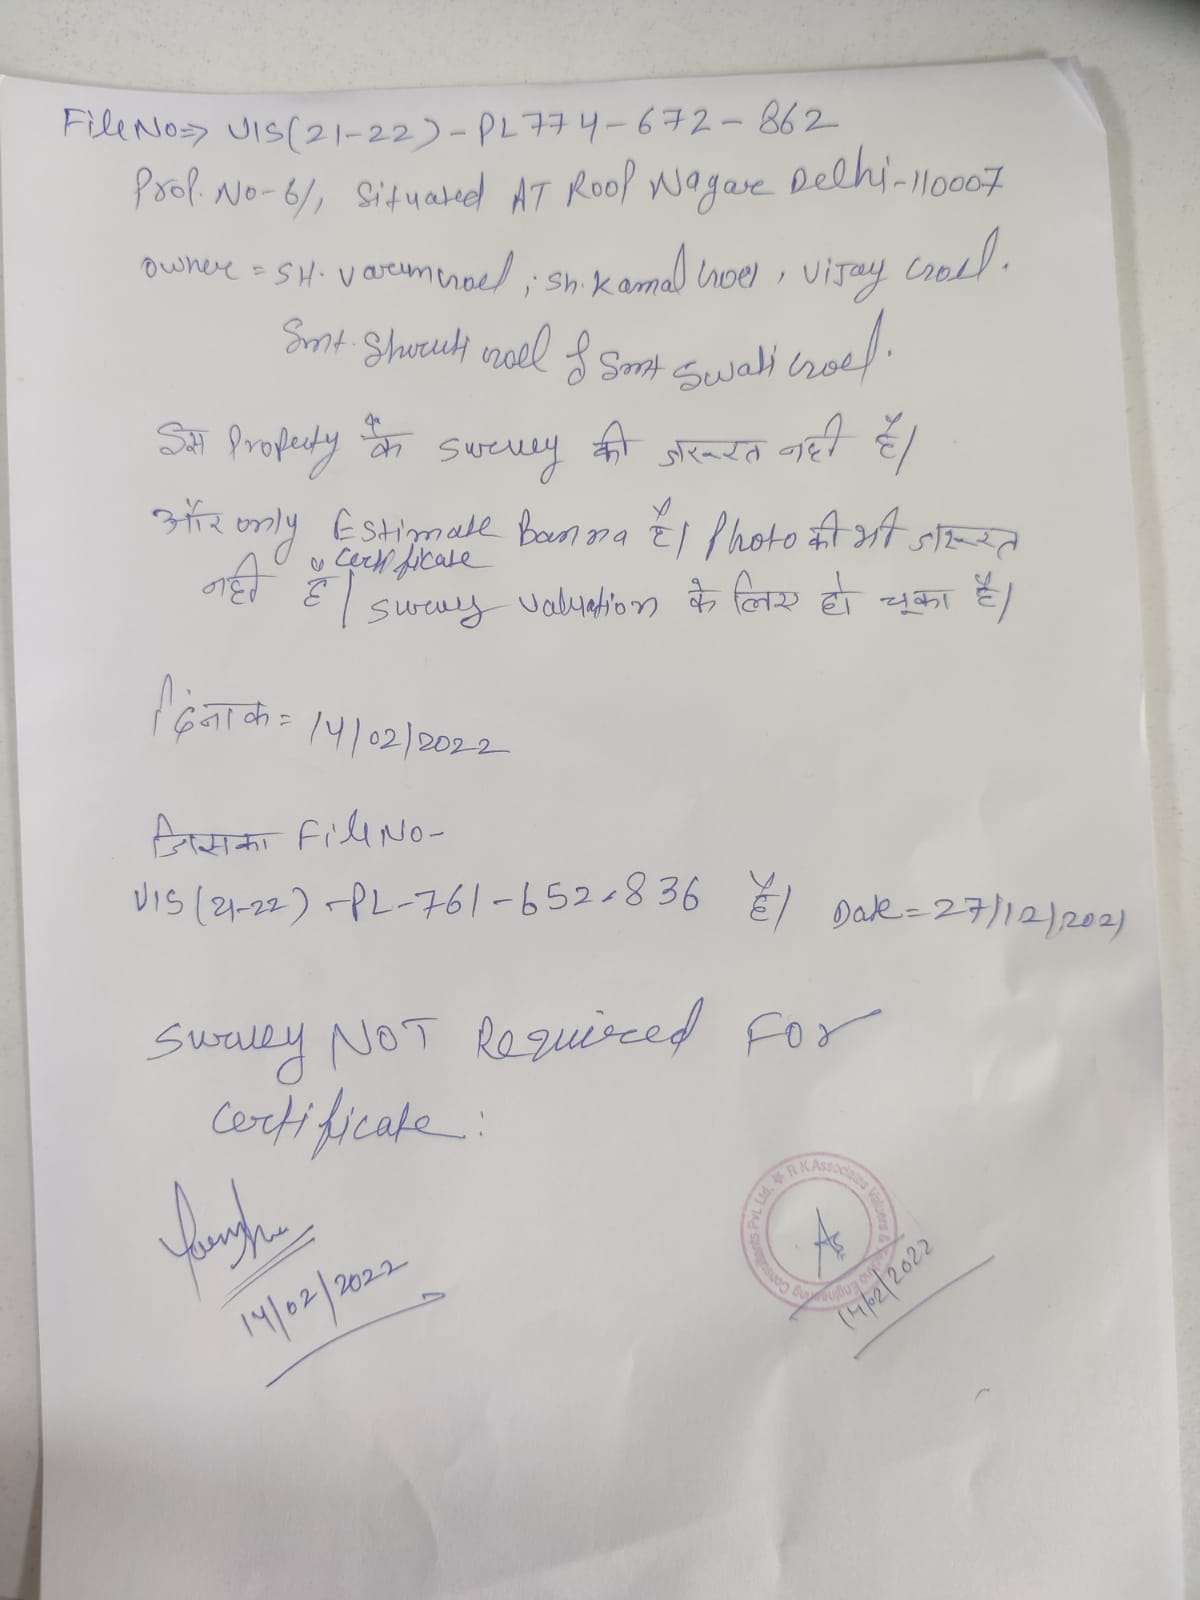 File No => VIS(21-22)-PL774-672-862
Prop. No-6/1, Situated AT Roop Nagar Delhi-110007
Owner = SH. Varun Goel, Sh. Kamal Goel, Vijay Goel.
Smt. Shruti Goel & Smt Swati Goel.
इस Property के Survey की जरूरत नही है।
और only Estimate Banna है। Photo की भी जरूरत
certificate
नही है। Survey valuation के लिए हो चूका है।
दिंनाक = 14/02/2022
जिसका File No-
VIS (21-22)-PL-761-652-836 है। Date = 27/12/2021
Survey NOT Required For
certificate:
14/02/2022
R K Associates Valuers & Techno Engineering Consultants Pvt. Ltd.
14/02/2022